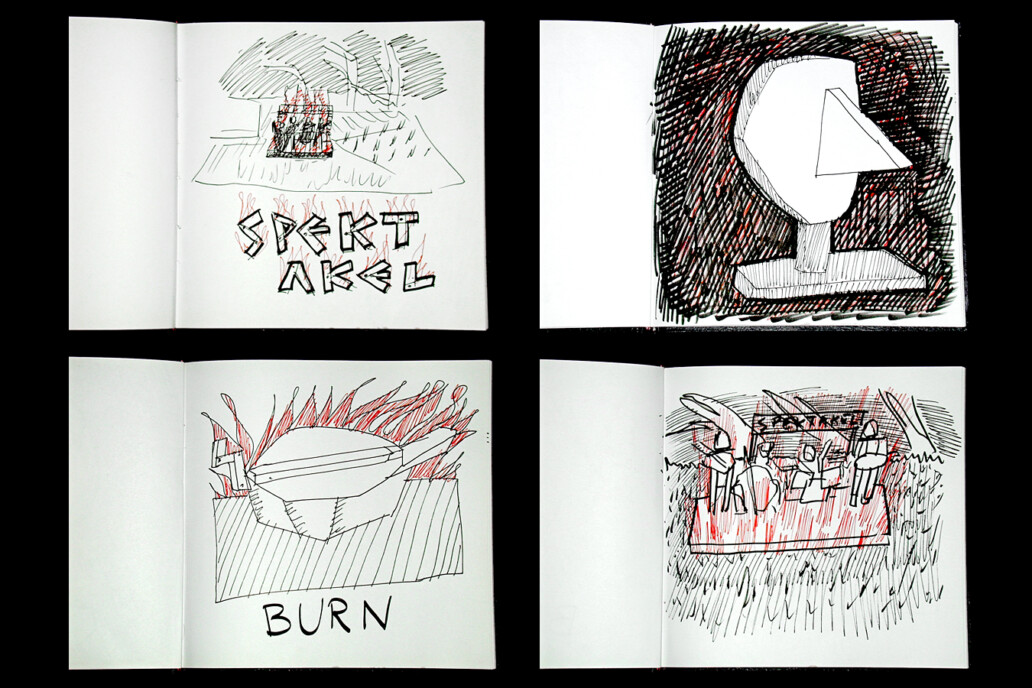 SPEKT
AKEL
BURN
SPEKTAKEL